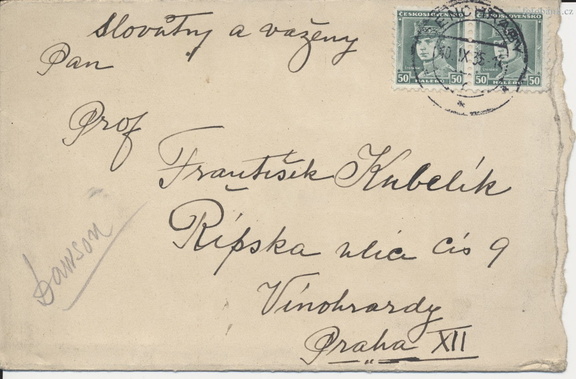 Slovůtny a važeny
Pan
Prof
František Kubelík
Řípska ulice čis 9
Vinohrardy
Praha XII
Dawson
ČESKOSLOVENSKO
50 HALÉŘŮ 50
ČESKOSLOVENSKO
50 HALÉŘŮ 50
IX 35